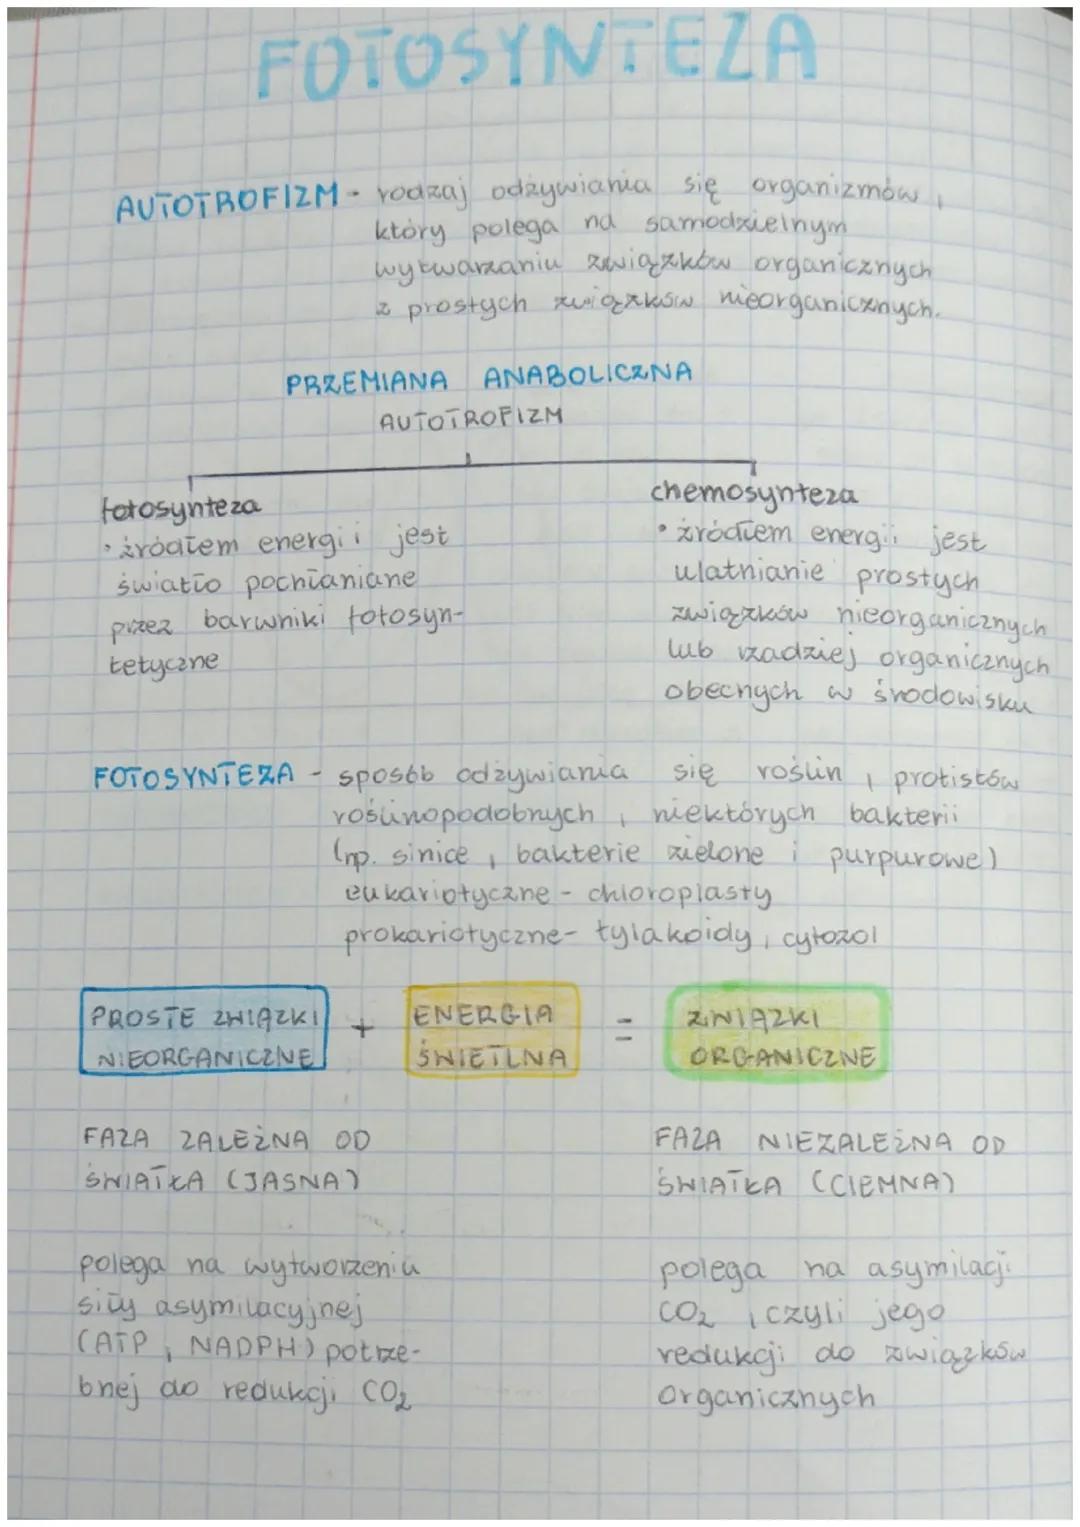 FOTOSYNTEZA
AUTOTROFIZM - rodzaj odżywiania się organizmów,
który polega na samodzielnym
wytwarzaniu związków organicznych
z prostych związków nieorganicznych.
PRZEMIANA ANABOLICZNA
AUTOTROFIZM
fotosynteza
• źródłem energii jest
światło pochłaniane
przez barwniki fotosyn-
tetyczne
chemosynteza
• źródłem energii jest
ulatnianie prostych
związków nieorganicznych
lub rzadziej organicznych
obecnych w środowisku
FOTOSYNTEZA - sposób odżywiania się roślin, protistów
roślinopodobnych, niektórych bakterii
(np. sinice, bakterie zielone i purpurowe)
eukariotyczne - chloroplasty
prokariotyczne - tylakoidy, cytozol
PROSTE ZWIĄZKI
NIEORGANICZNE
+
ENERGIA
ŚWIETLNA
=
ZWIĄZKI
ORGANICZNE
FAZA ZALEŻNA OD
ŚWIATŁA (JASNA)
polega na wytworzeniu
siły asymilacyjnej
(ATP, NADPH) potrze-
bnej do redukcji CO₂
FAZA NIEZALEŻNA OD
ŚWIATŁA (CIEMNA)
polega na asymilacji
CO₂, czyli jego
redukcji do związków
organicznych